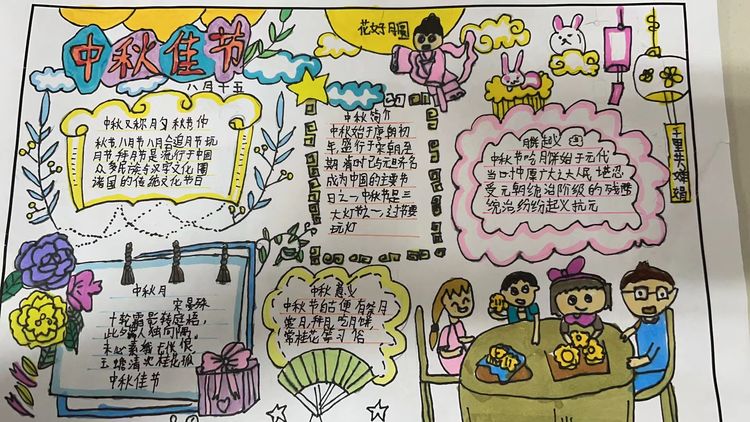 中秋佳节
八月十五
花好月圆
千里共婵娟
中秋又称月夕 秋节仲
秋节八月节八月会追月节玩
月节拜月节是流行于中国
众多民族与汉字文化圈
诸国的传统文化节日
中秋简介
中秋始于唐朝初
年,盛行于宋朝至
明清时已与元旦齐名
成为中国的主要节
日之一中秋节是三
大灯节之一,过节要
玩灯
月饼起义
中秋节吃月饼始于元代
当时中原广大人民
受元朝统治阶级的残酷
统治纷纷起义抗元
中秋月
晏殊
十轮霜影转庭梧,
此夕羁人独向隅。
玉蟾清冷桂花孤
中秋佳节
中秋意义
中秋节自古便有祭月
赏月,拜月,吃月饼,
赏桂花等习俗